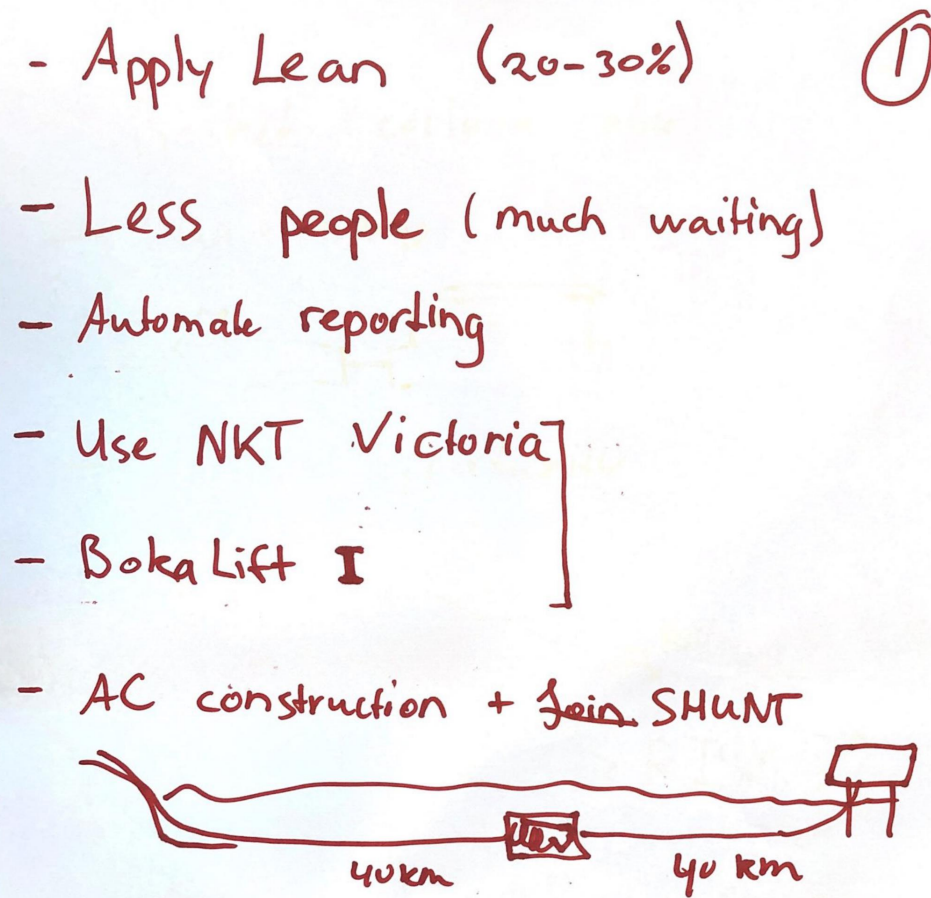 - Apply Lean (20-30%) 1
- Less people (much waiting)
- Automate reporting
- Use NKT Victoria
- Boka Lift I
- AC construction + SHUNT
40km 40 km